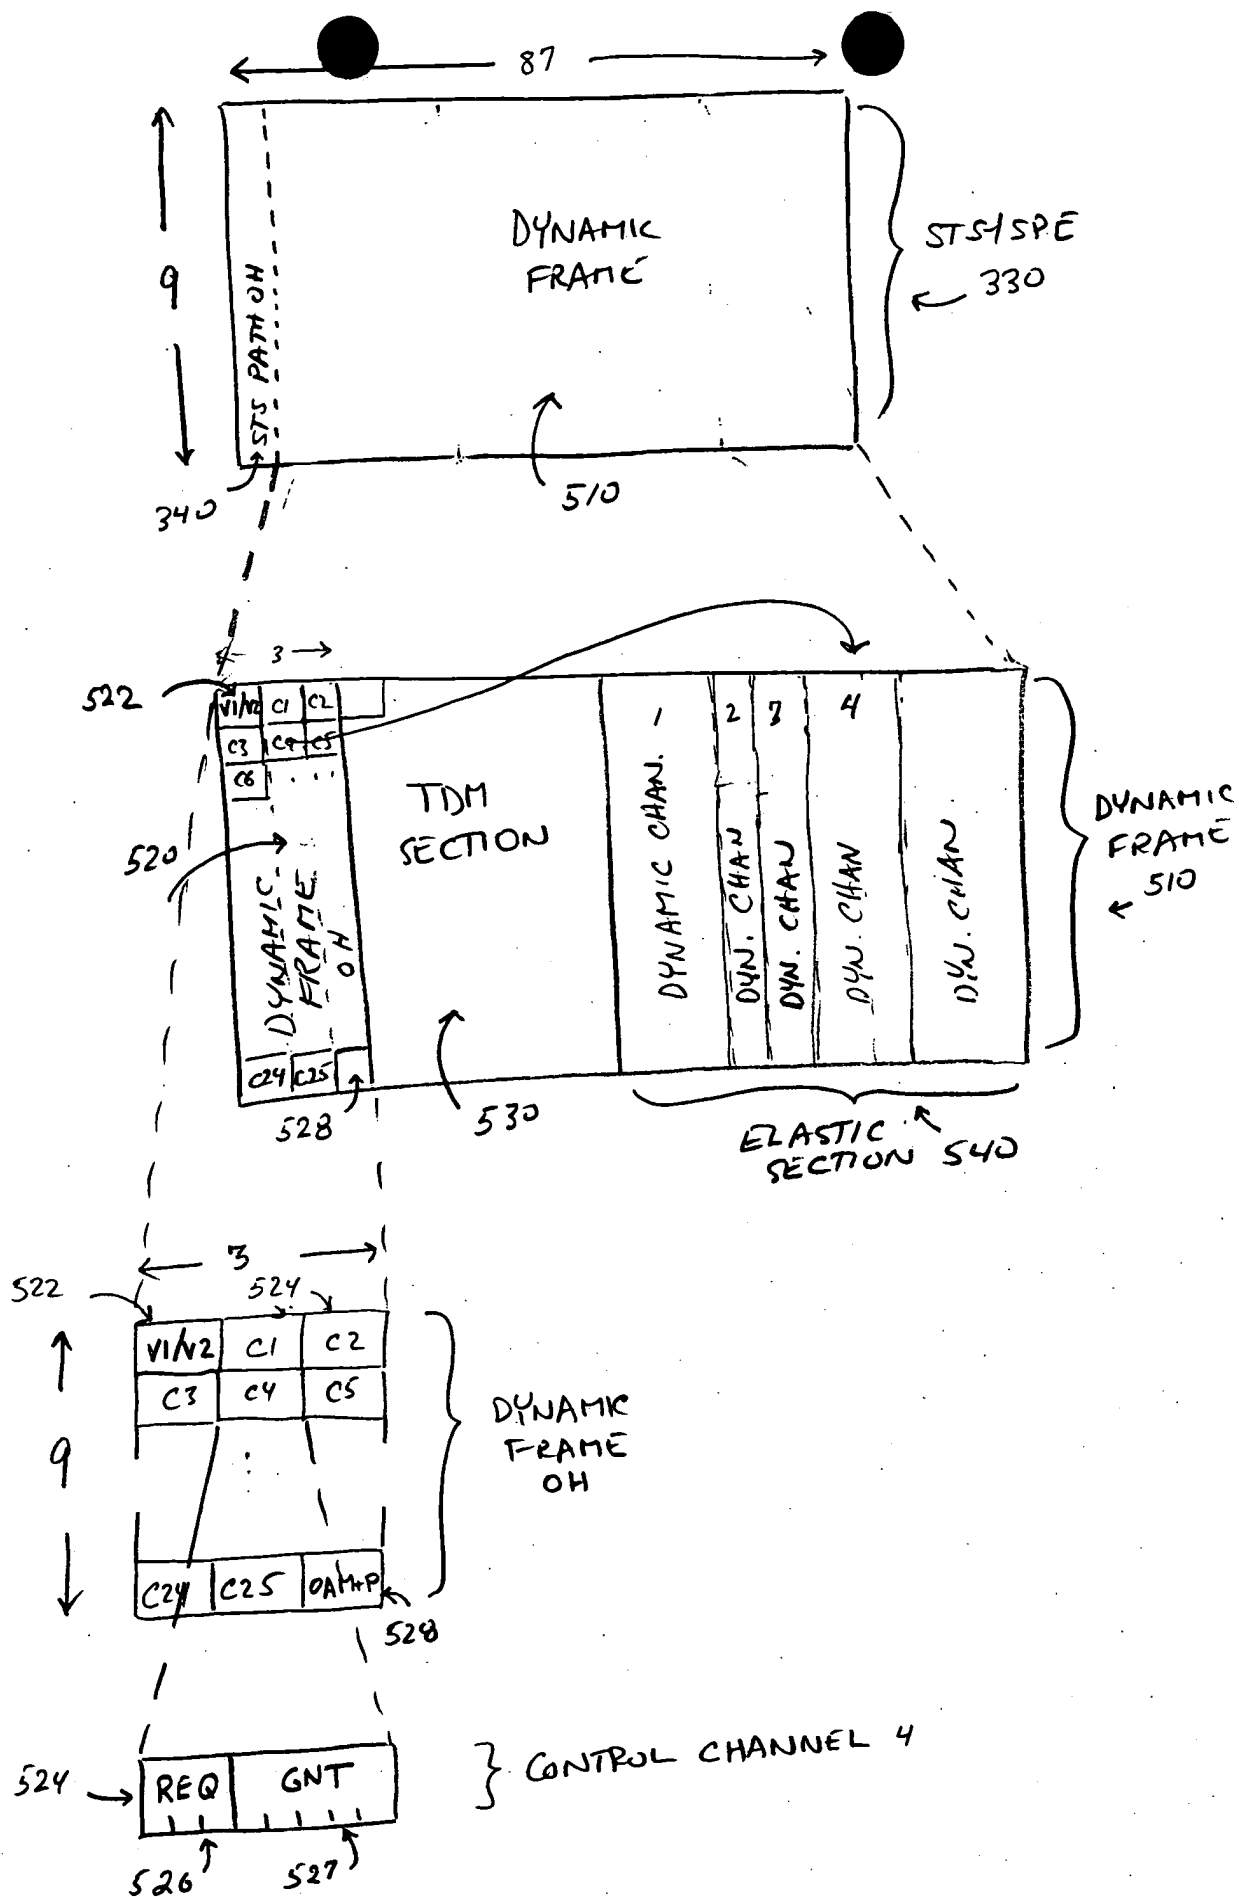 87
9
STS PATH OH
DYNAMIC
FRAME
STS1SPE
330
340
510
3
522
V1/V2 C1 C2
C3 C4 C5
C6 ...
520
DYNAMIC
FRAME
OH
C24 C25
528
TDM
SECTION
530
1 2 3 4
DYNAMIC CHAN.
DYN. CHAN
DYN. CHAN
DYN. CHAN
DYN. CHAN
DYNAMIC
FRAME
510
ELASTIC
SECTION 540
3
522
524
V1/V2 C1 C2
C3 C4 C5
9
DYNAMIC
FRAME
OH
C24 C25 OAM+P
528
524
REQ GNT
CONTROL CHANNEL 4
526
527